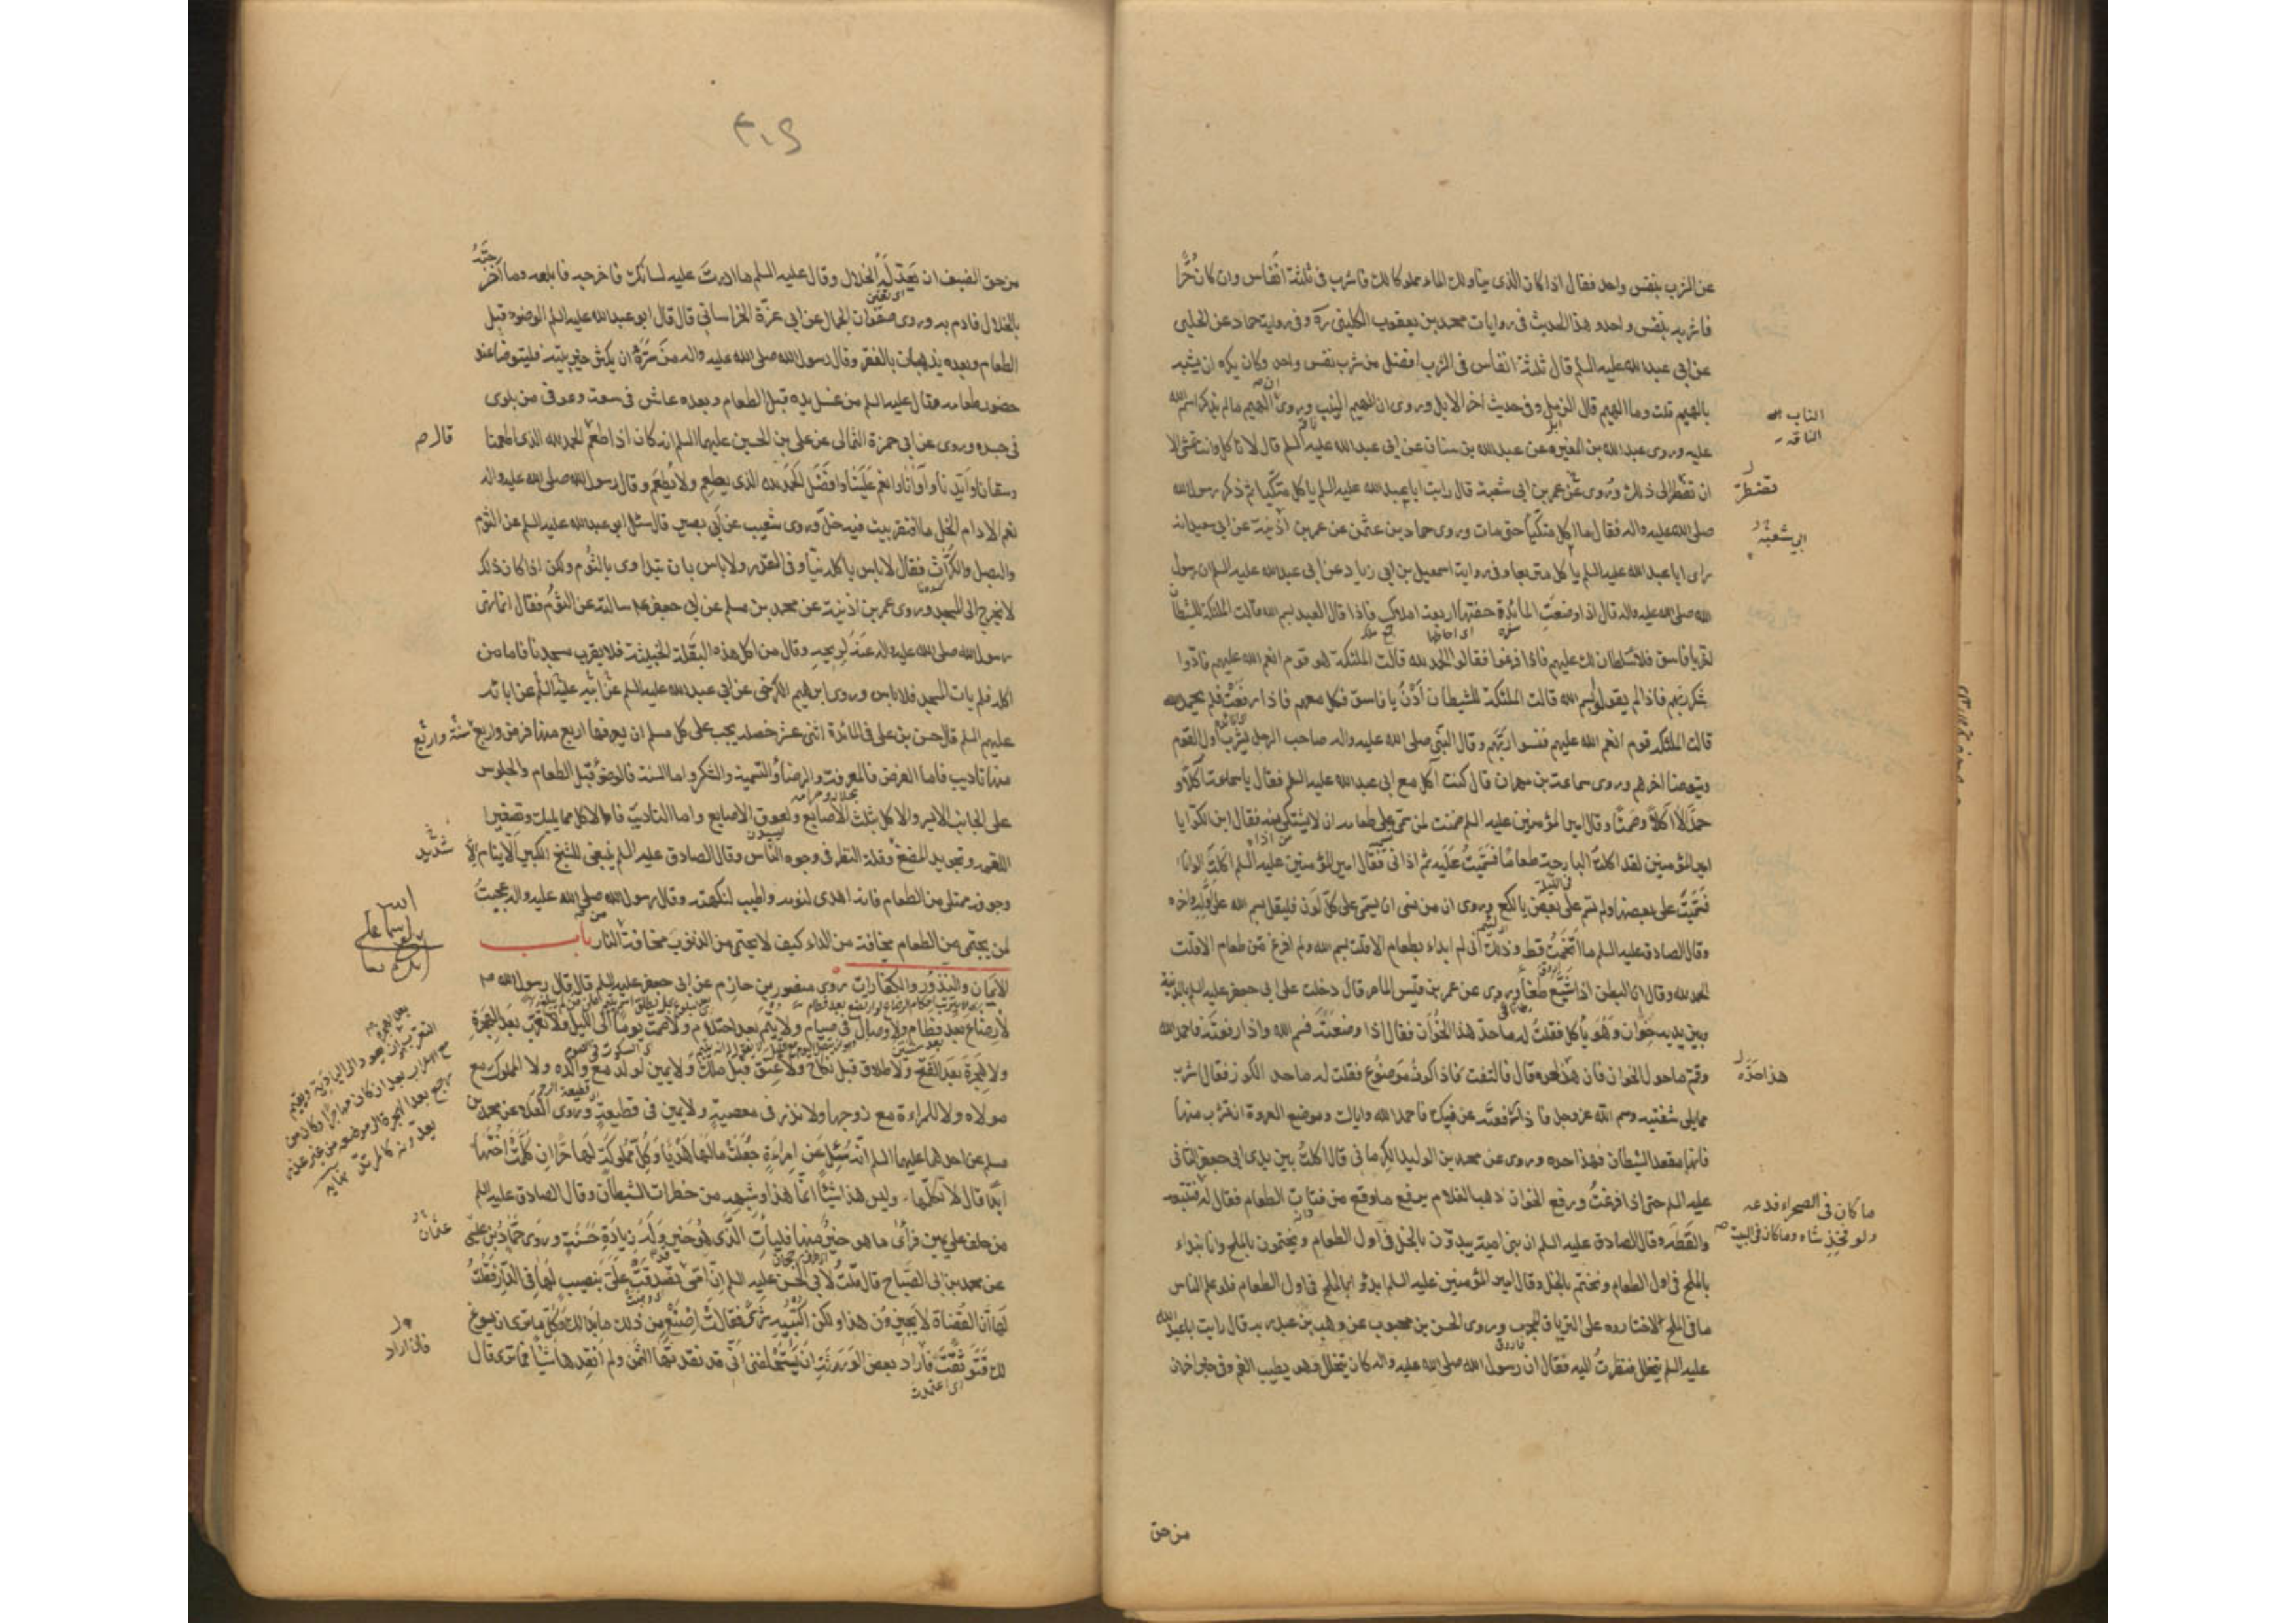 عن الشرب بنفس واحد فقال اذا كان الذى يناولك الماء مملوكا لك فاشرب فى ثلثة انفاس وان كان حُرّا
فاشربه بنفس واحد وهذا الحديث فى روايات محمد بن يعقوب الكلينى ره وفى رواية حماد عن الحلبى
عن ابى عبد الله عليه السلم قال ثلثة انفاس فى الشرب افضل من شرب نفس واحد وكان يكره ان يشبه
بالهيم قلت وما الهيم قال الزمل وفى حديث اخر الابل وروى ان الهيم النيب وروى ان الهيم ما لم يذكر اسم الله
عليه وروى عبد الله بن المغيره عن عبد الله بن سنان عن ابى عبد الله عليه السلم قال لا تاكل وانت تمشى الا
ان تضطر الى ذلك وروى عن عمر بن ابى شعبة قال رايت ابا عبد الله عليه السلم ياكل متكيا ثم ذكر رسول الله
صلى الله عليه واله فقال ما اكل متكيا حتى مات وروى حماد بن عثمن عن عمر بن اذينة عن ابى سعيد انه
راى ابا عبد الله عليه السلم ياكل متربعا وفى رواية اسمعيل بن ابى زياد عن ابى عبد الله عليه السلم ان رسول
الله صلى الله عليه واله قال اذا وضعت المائدة حفتها اربعة املاك فاذا قال العبد بسم الله قالت الملئكة للشيطان
اخرج يا فاسق فلا سلطان لك عليهم فاذا فرغوا فقالوا الحمد لله قالت الملئكة هو قوم انعم الله عليهم فادّوا
شكر ربهم فاذا لم يقولوا بسم الله قالت الملئكة للشيطان اُدْنُ يا فاسق فكل معهم فاذا رفعت فلم يحمد الله
قالت الملئكة قوم انعم الله عليهم فنسوا ربّهم وقال النبّى صلى الله عليه واله صاحب الرحل يشرب اول القوم
ويتوضا اخرهم وروى سماعة بن مهران قال كنت آكل مع ابى عبد الله عليه السلم فقال يا سماعة اكلا و
حمدًا لا اكلًا وصمتًا وقال امير المؤمنين عليه السلم ضمنت لمن سمى على طعامه ان لا يشتكى منه فقال ابن الكوّا يا
امير المؤمنين لقد اكلت البارحة طعامًا فسَمّيتُ عليه ثم اذانى فقال امير المؤمنين عليه السلم اكلت الوانا
فسمّيت على بعضها ولم تسم على بعض يا لكع وروى ان من نسى ان يسمى على كلّ لون فليقل بسم الله على اوله واخره
وقال الصادق عليه السلم ما اتخمت قط وذلك انى لم ابداء بطعام الا قلت بسم الله ولم افرغ من طعام الا قلت
الحمد لله وقال ان البطن اذا شبع طغا وروى عن عمر بن قيس الماصر قال دخلت على ابى جعفر عليه السلم بالمدينة
وبين يديه خوان وهو ياكل فقلت له ما حد هذا الخوان فقال اذا وضعته فسم الله واذا رفعته فاحمد الله
وقمّ ما حول الخوان فان هذا حده قال فالتفت فاذا كوز موضوع فقلت له ما حد الكوز فقال اشرب
مما يلى شفتيه وسم الله عز وجل فاذا رفعته عن فيك فاحمد الله واياك وموضع العروة ان تشرب منها
فانها مقعد الشيطان فهذا حده وروى عن محمد بن الوليد الكرمانى قال اكلت بين يدى ابى جعفر الثانى
عليه السلم حتى اذا فرغت ورفع الخوان ذهب الغلام يرفع ما وقع من فتات الطعام فقال له
والقطه وقال الصادق عليه السلم ان بنى امية يبدؤن بالخل فى اول الطعام ويختمون بالملح وانا نبداء
بالملح فى اول الطعام ونختم بالخل وقال امير المؤمنين عليه السلم ابدؤا بالملح فى اول الطعام فلو علم الناس
ما فى الملح لاختاروه على الترياق المجرب وروى الحسن بن محبوب عن وهب بن عبد ربه قال رايت ابا عبد الله
عليه السلم يتخلل فنظرت اليه فقال ان رسول الله صلى الله عليه واله كان يتخلل وهو يطيب الفم وفى خبر اخر ان
من حق
الناب
الناقة
تضطر
ابى شعبة
هذا حدّه
ما كان فى الصحراء فدعه
ولو فخذ شاه وما كان فى البيت
من حق الضيف ان يعد له الخلال وقال عليه السلم ما ادرت عليه لسانك فاخرجه فابلعه وما اخرجته
بالخلال فارم به وروى صفوان الجمال عن ابى عزّة الخراسانى قال قال ابو عبد الله عليه السلم الوضوء قبل
الطعام وبعده يذهبان بالفقر وقال رسول الله صلى الله عليه واله من سرّه ان يكثر خير بيته فليتوضا عند
حضور طعامه وقال عليه السلم من غسل يده قبل الطعام وبعده عاش فى سعة وعوفى من بلوى
فى جسده وروى عن ابى حمزة الثمالى عن على بن الحسين عليهما السلم انه كان اذا طعم الحمد لله الذى اطعمنا
وسقانا وايّدنا وآوانا وانعم علينا وافضل الحمد لله الذى يطعم ولا يُطعم وقال رسول الله صلى الله عليه واله
نعم الادام الخل ما افتقر بيت فيه خلّ وروى شعيب عن ابى بصير قال سئل ابو عبد الله عليه السلم عن الثوم
والبصل والكرّاث فقال لا باس باكله نيّا وفى القدر ولا باس بان يتداوى بالثوم ولكن اذا كان ذلك
لا يخرج الى المسجد وروى عمر بن اذينة عن محمد بن مسلم عن ابى جعفر قال سالته عن الثوم فقال انما نهى
رسول الله صلى الله عليه واله عنه لريحه وقال من اكل هذه البقلة الخبيثة فلا يقرب مسجدنا فاما من
اكله فلم يات المسجد فلا باس وروى ابرهيم الكرخى عن ابى عبد الله عليه السلم عن ابيه عليه السلم عن ابائه
عليهم السلم قال حسن بن على فى المائدة اثنى عشر خصلة يجب على كل مسلم ان يعرفها اربع منها فرض واربع سنّة واربع
منها تاديب فاما الفرض فالمعرفة والرضا والتسمية والشكر واما السنة فالوضوء قبل الطعام والجلوس
على الجانب الايسر والاكل بثلث الاصابع ولعوق الاصابع واما التاديب فالاكل مما يليك وتصغير
اللقمه وتجويد المضغ وقلة النظر فى وجوه الناس وقال الصادق عليه السلم ينبغى للشيخ الكبير الا ينام الا
وجوفه ممتلى من الطعام فانه اهدى لنومه واطيب لنكهته وقال رسول الله صلى الله عليه واله عجبت
لمن يحتمى من الطعام مخافة من الداء كيف لا يحتمى من الذنوب مخافة النار باب
الايمان والنذور والكفارات روى منصور بن حازم عن ابى جعفر عليه السلم قال قال رسول الله ص
لا رضاع بعد فطام ولا وصال فى صيام ولا يتم بعد احتلام ولا صمت يوما الى الليل ولا تعرّب بعد الهجرة
ولا هجرة بعد الفتح ولا طلاق قبل نكاح ولا عتق قبل ملك ولا يمين لولد مع والده ولا المملوك مع
مولاه ولا للمراءة مع زوجها ولا نذر فى معصية ولا يمين فى قطيعة وروى العلاء عن محمد بن
مسلم عن احدهما عليهما السلم انه سئل عن امراءة جعلت مالها هديا وكل مملوك لها حرا ان كلمت اختها
ابدًا قال لا تكلّمها وليس هذا شيئا انما هذا وشبهه من خطرات الشيطان وقال الصادق عليه السلم
من حلف على يمين فراى ما هو خير منها فليات الذى هو خير وله زيادة حسنة وروى حمّاد بن على
عن محمد بن ابى الصباح قال قلت لابى الحسن عليه السلم ان امى تصدقت على بنصيب لها فى الدار فقلت
لها ان القضاة لا يجيزون هذا ولكن اكتبيه شرى فقالت اصنع من ذلك ما بدا لك وكل ما ترى انه يسوغ
لك فتوثقت فاراد بعض الورثة ان يستحلفنى انى قد نقدتها الثمن ولم انقدها شيئا فما ترى قال
قال
شديد
عثمان
فان اراد
اى اعتمدت